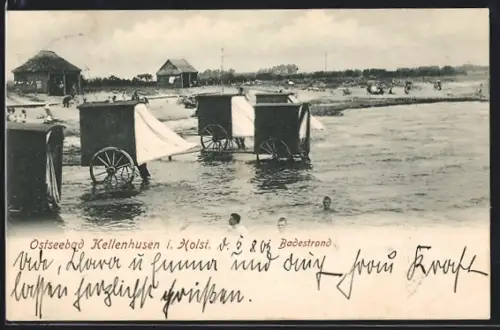 Ostseebad Kellenhusen i. Holst. d. 5 8 02 Badestrand
Klara u Emma und Frau Kraft
lassen herzlichst grüßen.